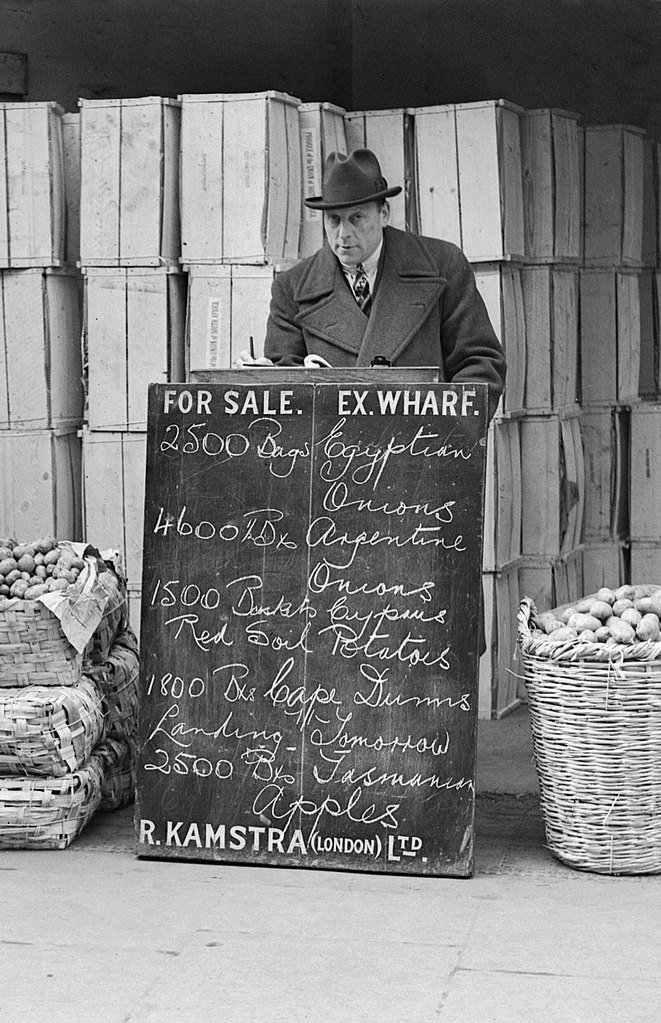 FOR SALE. EX. WHARF.
2500 Bags Egyptian
Onions
4600 ½Bxs Argentine
Onions
1500 Baskets Cyprus
Red Soil Potatoes
1800 Bxs Cape Dunns
Landing Tomorrow
2500 Bxs Tasmanian
Apples
R. KAMSTRA (LONDON) LTD.